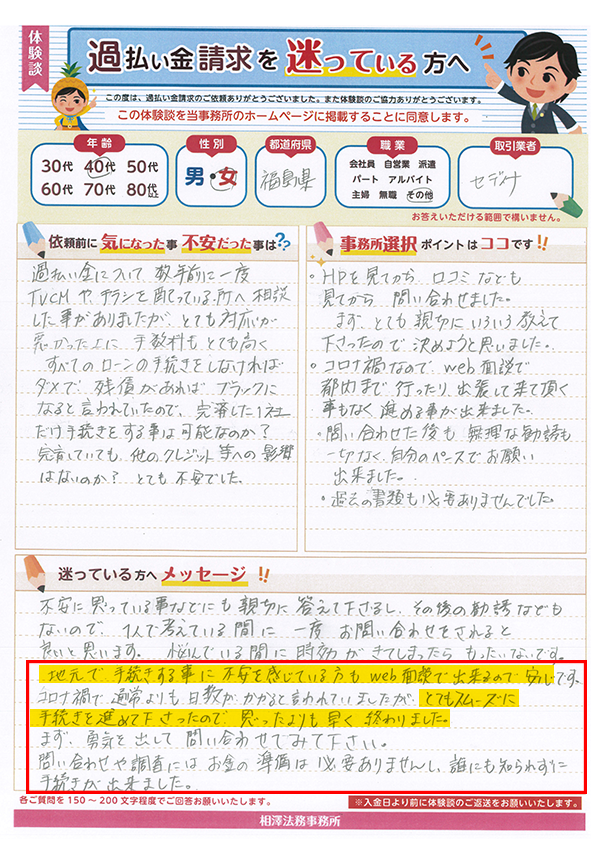 体験談
過払い金請求を迷っている方へ
この度は、過払い金請求のご依頼ありがとうございました。また体験談のご協力ありがとうございます。
この体験談を当事務所のホームページに掲載することに同意します。
年齢
30代 40代 50代
60代 70代 80代以上
性別
男・女
都道府県
福島県
職業
会社員 自営業 派遣
パート アルバイト
主婦 無職 その他
取引業者
セディナ
お答えいただける範囲で構いません。
依頼前に気になった事 不安だった事は??
過払い金について 数年前に一度
TVCMやチラシを配っている所へ相談
した事がありましたが、とても対応が
悪かった上に 手数料もとても高く
すべてのローンの手続きをしなければ
ダメで、残債があれば ブラックに
なると言われていたので、完済した1社
だけ手続きをする事は可能なのか?
完済していても、他のクレジット等への影響
はないのか? とても不安でした。
事務所選択ポイントはココです!!
・HPを見てから 口コミなども
見てから 問い合わせました。
まず、とても親切にいろいろ教えて
下さったので 決めようと思いました。
・コロナ禍なので、web面談で
都内まで 行ったり、出張して来て頂く
事もなく 進める事が出来ました。
・問い合わせた後も 無理な勧誘も
一切なく、自分のペースでお願い
出来ました。
・過去の書類も必要ありませんでした。
迷っている方へメッセージ!!
不安に思っている事などにも 親切に 答えて下さるし、その後の勧誘なども
ないので、1人で考えている間に 一度 お問い合わせをされると
良いと思います。 悩んでいる間に 時効が きてしまったら もったいないです。
地元で 手続きする事に 不安を感じている方も web面談で出来るので 安心です。
コロナ禍で、通常よりも 日数が かかると言われていましたが、とてもスムーズに
手続きを進めて下さったので 思ったよりも 早く 終わりました。
まず、勇気を出して 問い合わせてみて下さい。
問い合わせや調査には お金の 準備は 必要ありませんし、誰にも知られずに
手続きが 出来ました。
各ご質問を150～200文字程度でご回答お願いいたします。
※入金日より前に体験談のご返送をお願いいたします。
相澤法務事務所